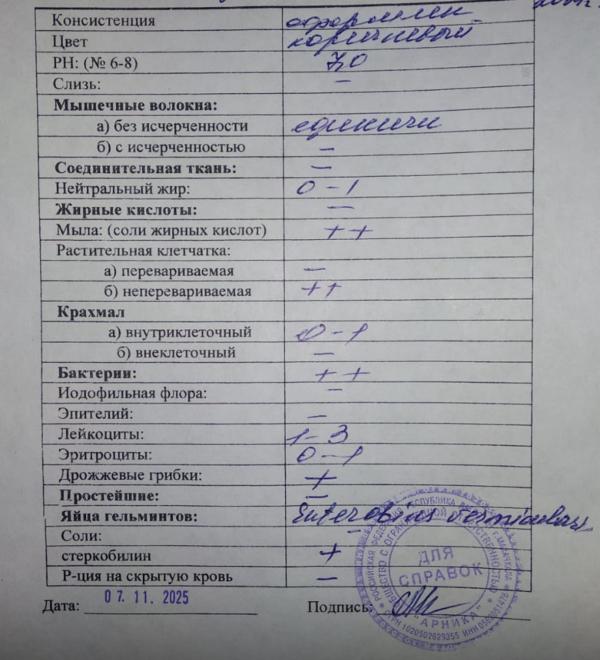 Консистенция оформлен
Цвет коричневый
PH: (№ 6-8) 7,0
Слизь: –
Мышечные волокна:
а) без исчерченности единичн
б) с исчерченностью –
Соединительная ткань: –
Нейтральный жир: 0-1
Жирные кислоты: –
Мыла: (соли жирных кислот) ++
Растительная клетчатка:
а) перевариваемая –
б) неперевариваемая ++
Крахмал
а) внутриклеточный 0-1
б) внеклеточный –
Бактерии: ++
Иодофильная флора: –
Эпителий: –
Лейкоциты: 1-3
Эритроциты: 0-1
Дрожжевые грибки: +
Простейшие: –
Яйца гельминтов: Enterobius vermicularis
Соли:
стеркобилин +
Р-ция на скрытую кровь –
Дата: 07. 11. 2025 Подпись:
ДЛЯ
СПРАВОК
"АРНИКА"